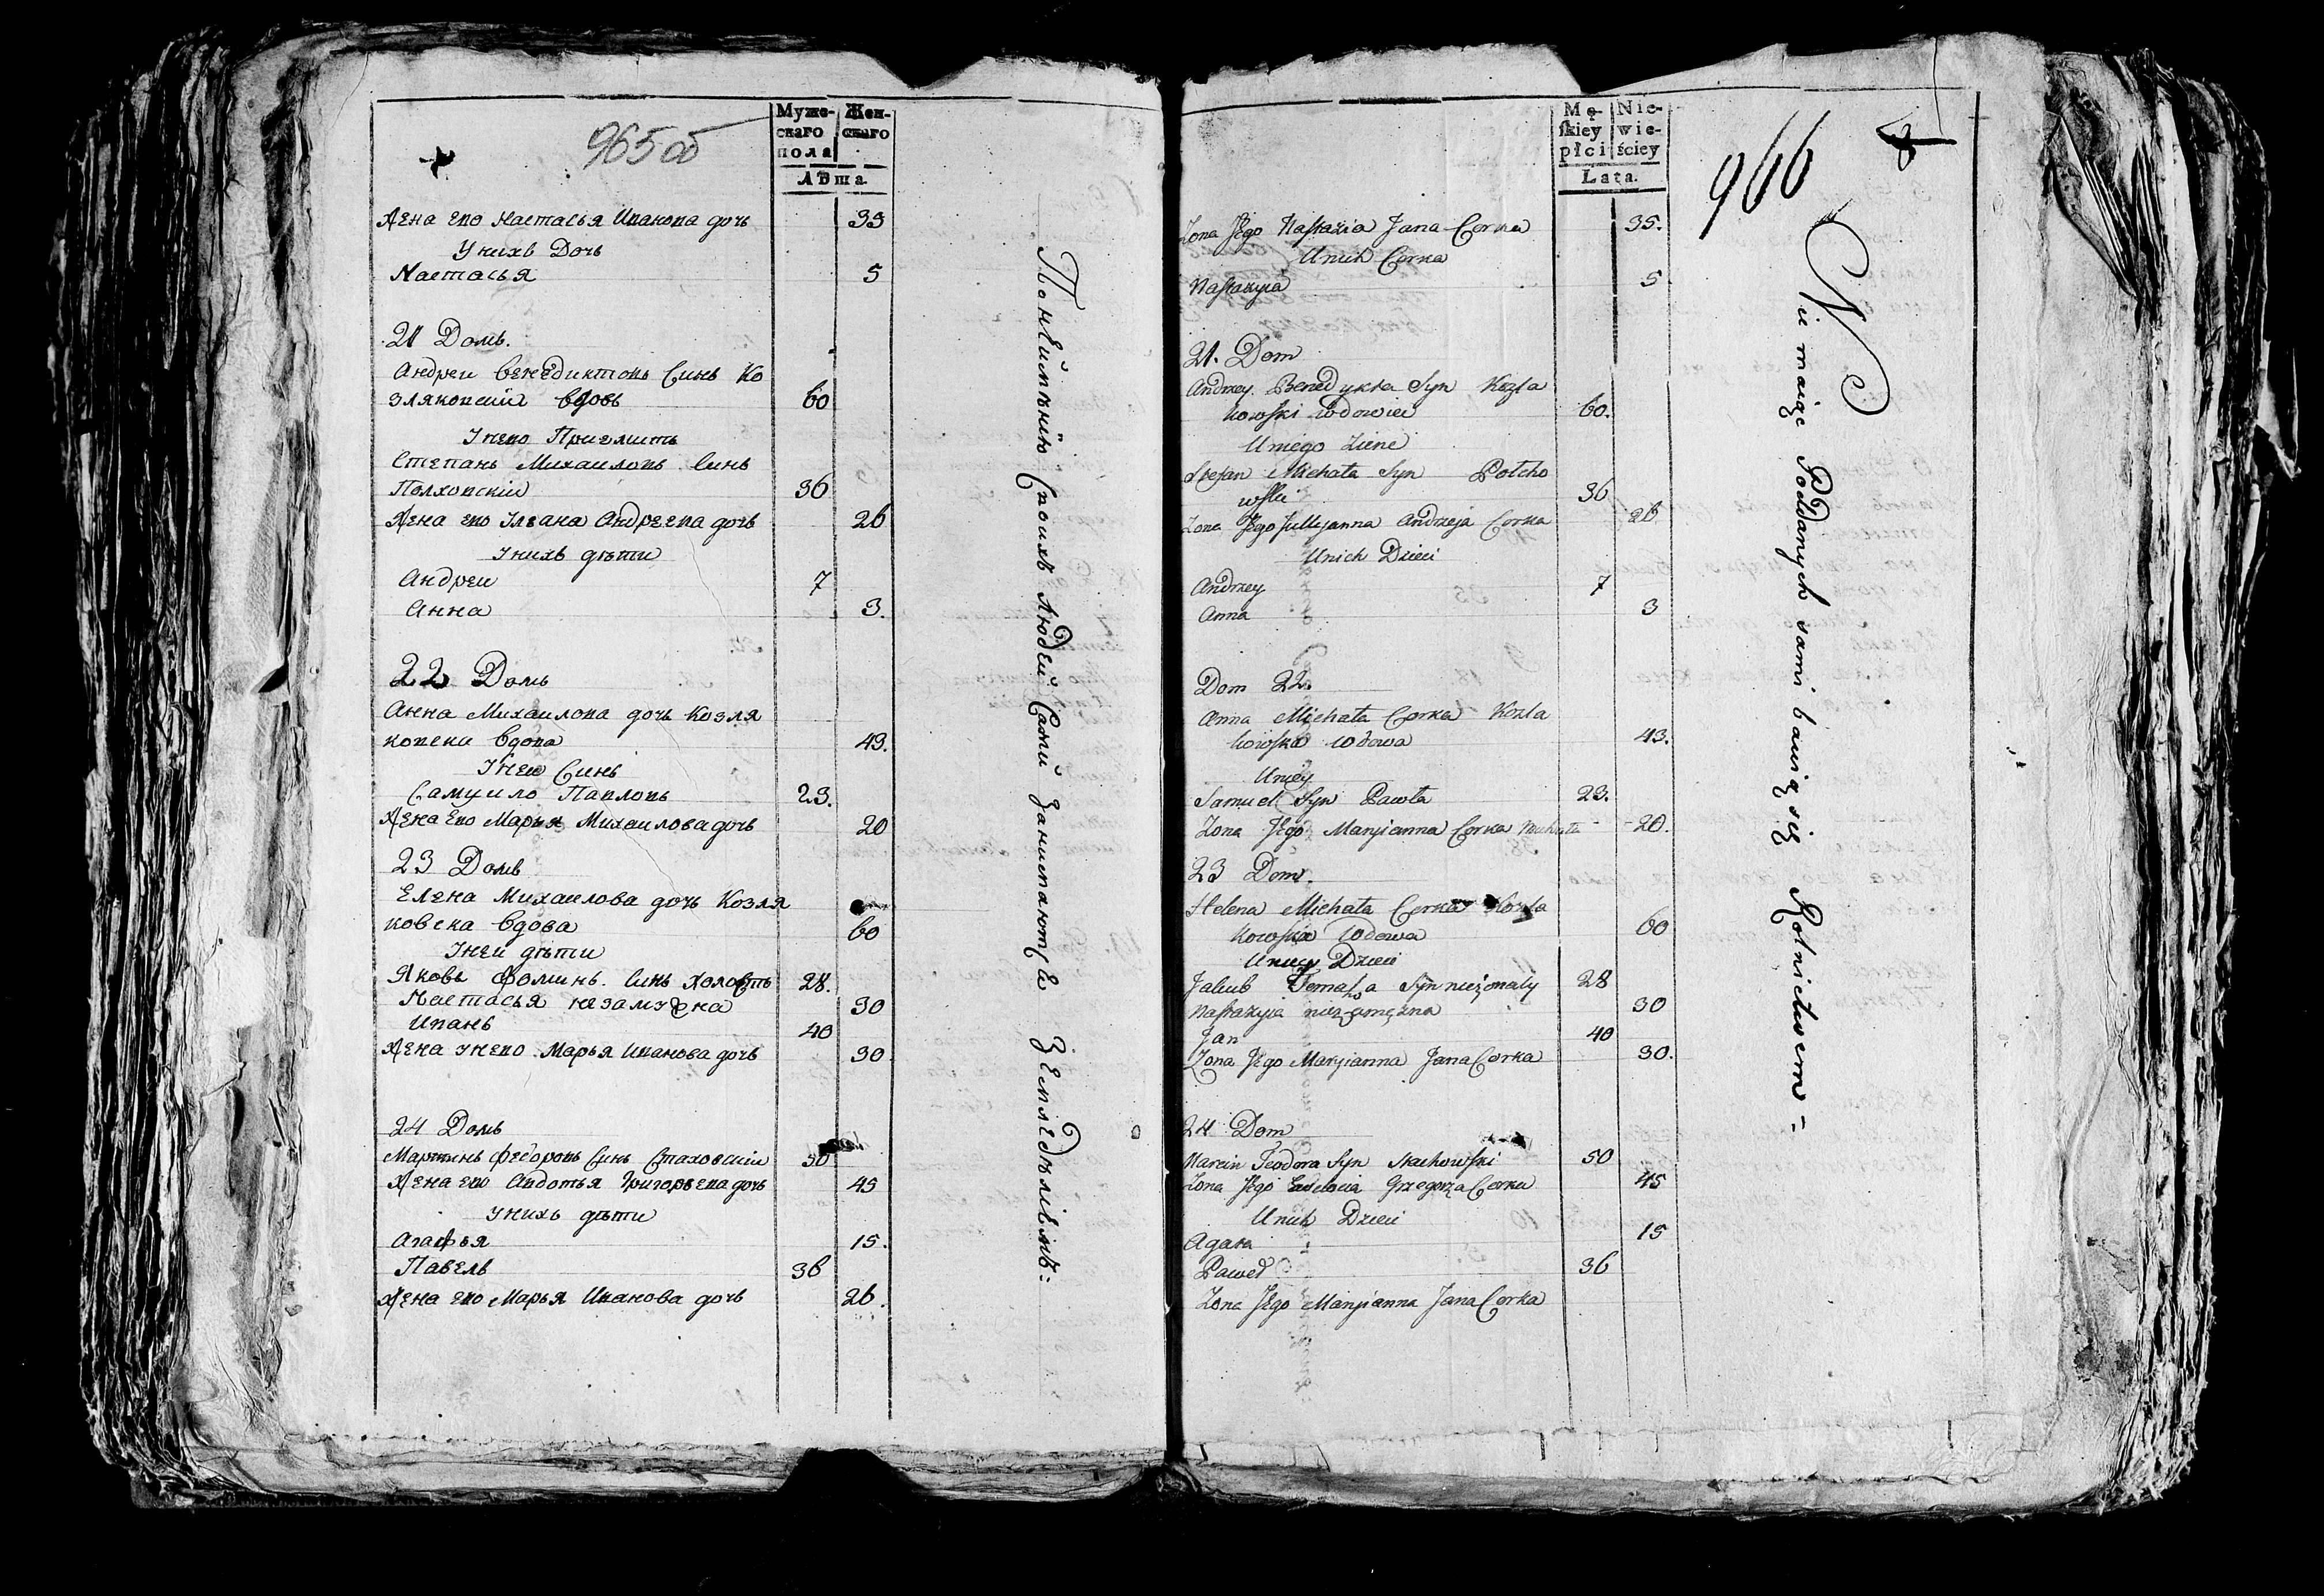 965 об
Муже-
скаго
пола
Жен-
скаго
Лѣта.
Жена его Настасья Иванова дочь 35
У нихъ Дочь
Настасья 5
21 Домъ.
Андреи Венедиктовъ Синъ Ко
зляковский вдовъ 60
У него Приемить
Степанъ Михаиловъ Синъ
Полховский 36
Жена его Улеана Андреева дочь 26
У нихъ дѣти
Андреи 7
Анна 3.
22 Домъ
Анна Михаилова дочь Козля
ковска вдова 43.
У неи Синъ
Самуило Павловъ 23.
Жена Его Марья Михаилова дочь 20
23 Домъ
Елена Михаилова дочь Козля
ковска вдова 60
У неи дѣти
Яковъ Фоминъ Синъ Холостъ 28.
Настасья незамужна 30
Иванъ 40
Жена у него Марья Иванова дочь 30
24 Домъ
Мартинъ Федоровъ Синъ Стаховский 50
Жена его Авдотья Григорьева дочь 45
У нихъ дѣти
Агафья 15.
Павель 36
Жена его Марья Иванова дочь 26.
Поневмѣнию своихъ людей сами занимаются земледѣлиемъ:
966
Mę-
skiey
płci
Nie-
wie-
ściey
Lata.
Zona Jego Nastazia Jana Corka 35.
Unich Corka
Nastazyia 5
21. Dom
Andrzey Benedykta Syn Kozla
kowski wdowiec 60.
Uniego Ziene
Stefan Michała Syn Połcho
wski 36
Zona Jego Jullyanna Andrzeja Corka 26
Unich Dzieci
Andrzey 7
Anna 3
Dom 22.
Anna Michała Corka Kozla
kowska wdowa 43.
Uniey
Samuel Syn Pawła 23.
Zona Jego Maryianna Corka Michała 20.
23 Dom.
Helena Michała Corka Kozla
kowska Wdowa 60
Uniey Dzieci
Jakub Tomasza Syn nieżonaty 28
Nastazyia niezamężna 30
Jan 40
Zona Jego Maryianna Jana Corka 30.
24 Dom
Marcin Teodora Syn Stachowski 50
Zona Jego Grzegorza Corka 45
Unich Dzieci
Agata 15
Paweł 36
Zona Jego Maryianna Jana Corka
Nie maiąc Poddanych sami bawią się Rolnictwem